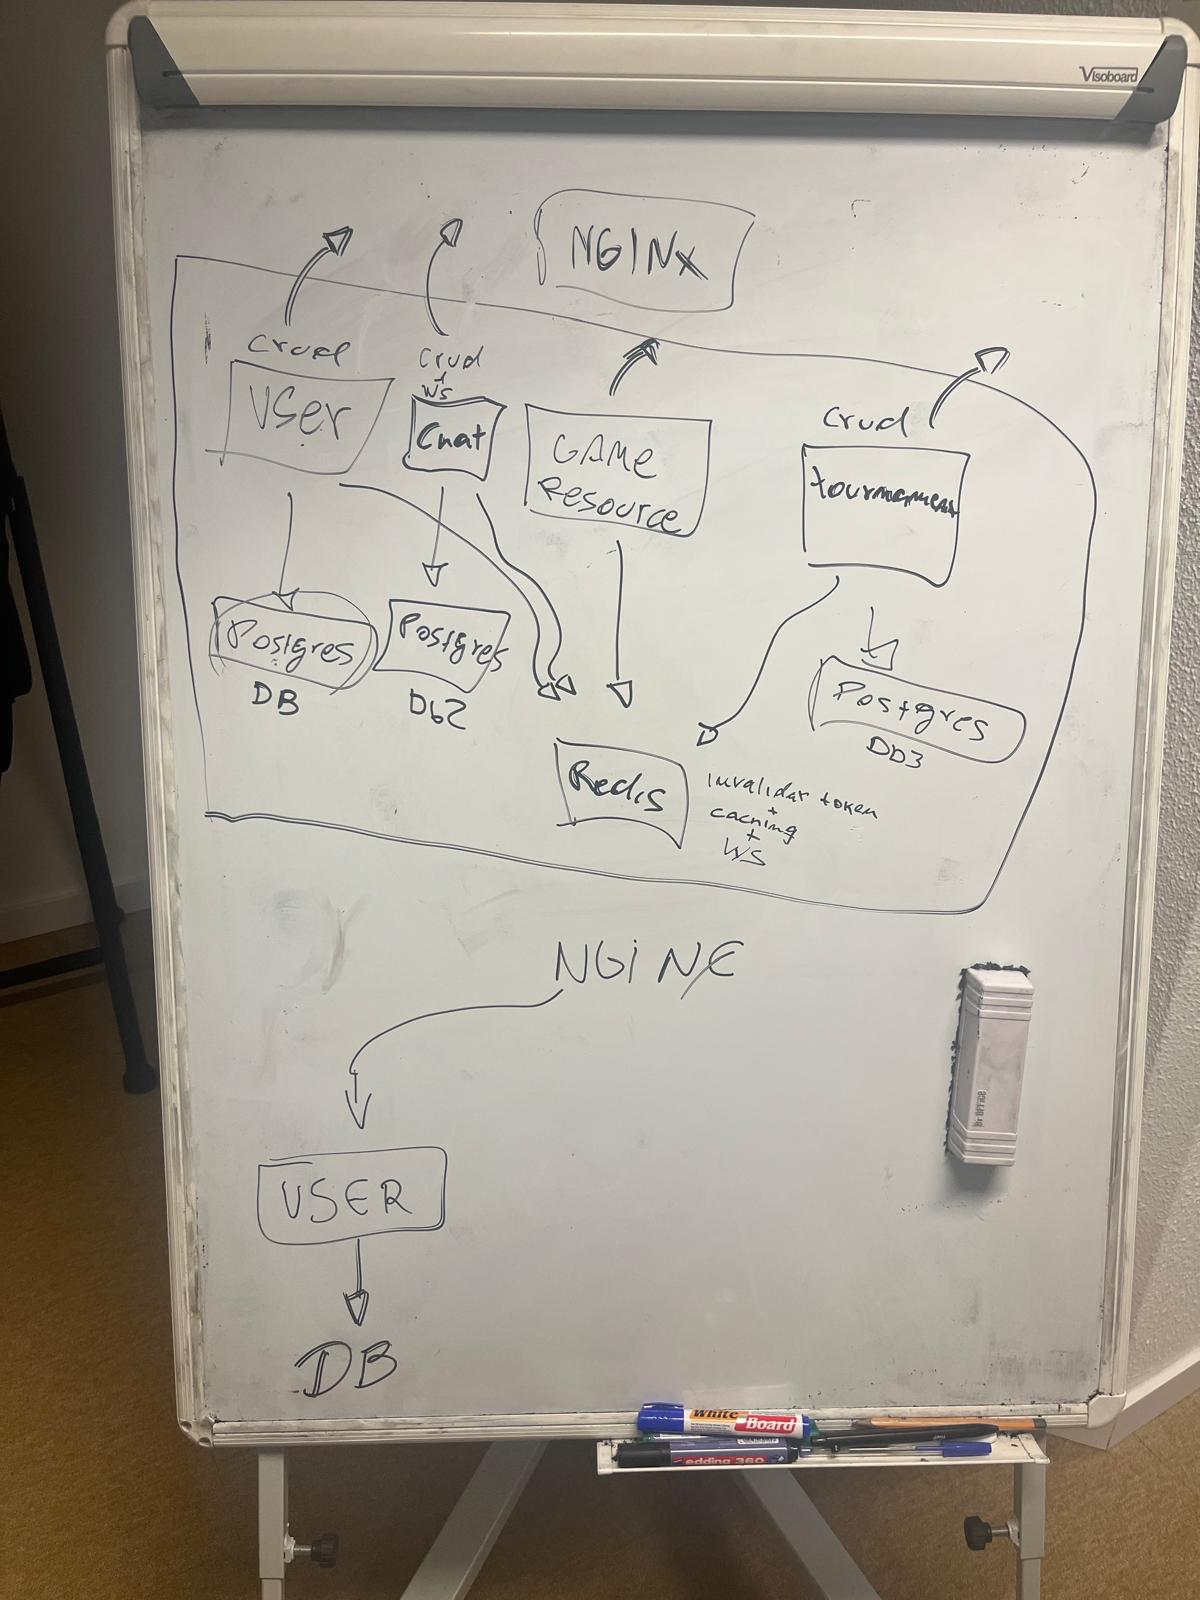 Visoboard
NGINX
crud
User
crud
+
WS
Chat
GAMe
Resource
crud
tournament
Postgres
DB
Postgres
Db2
Postgres
DD3
Redis
invalidar token
+
caching
+
WS
NGiNX
USER
DB
White
Board
edding 360